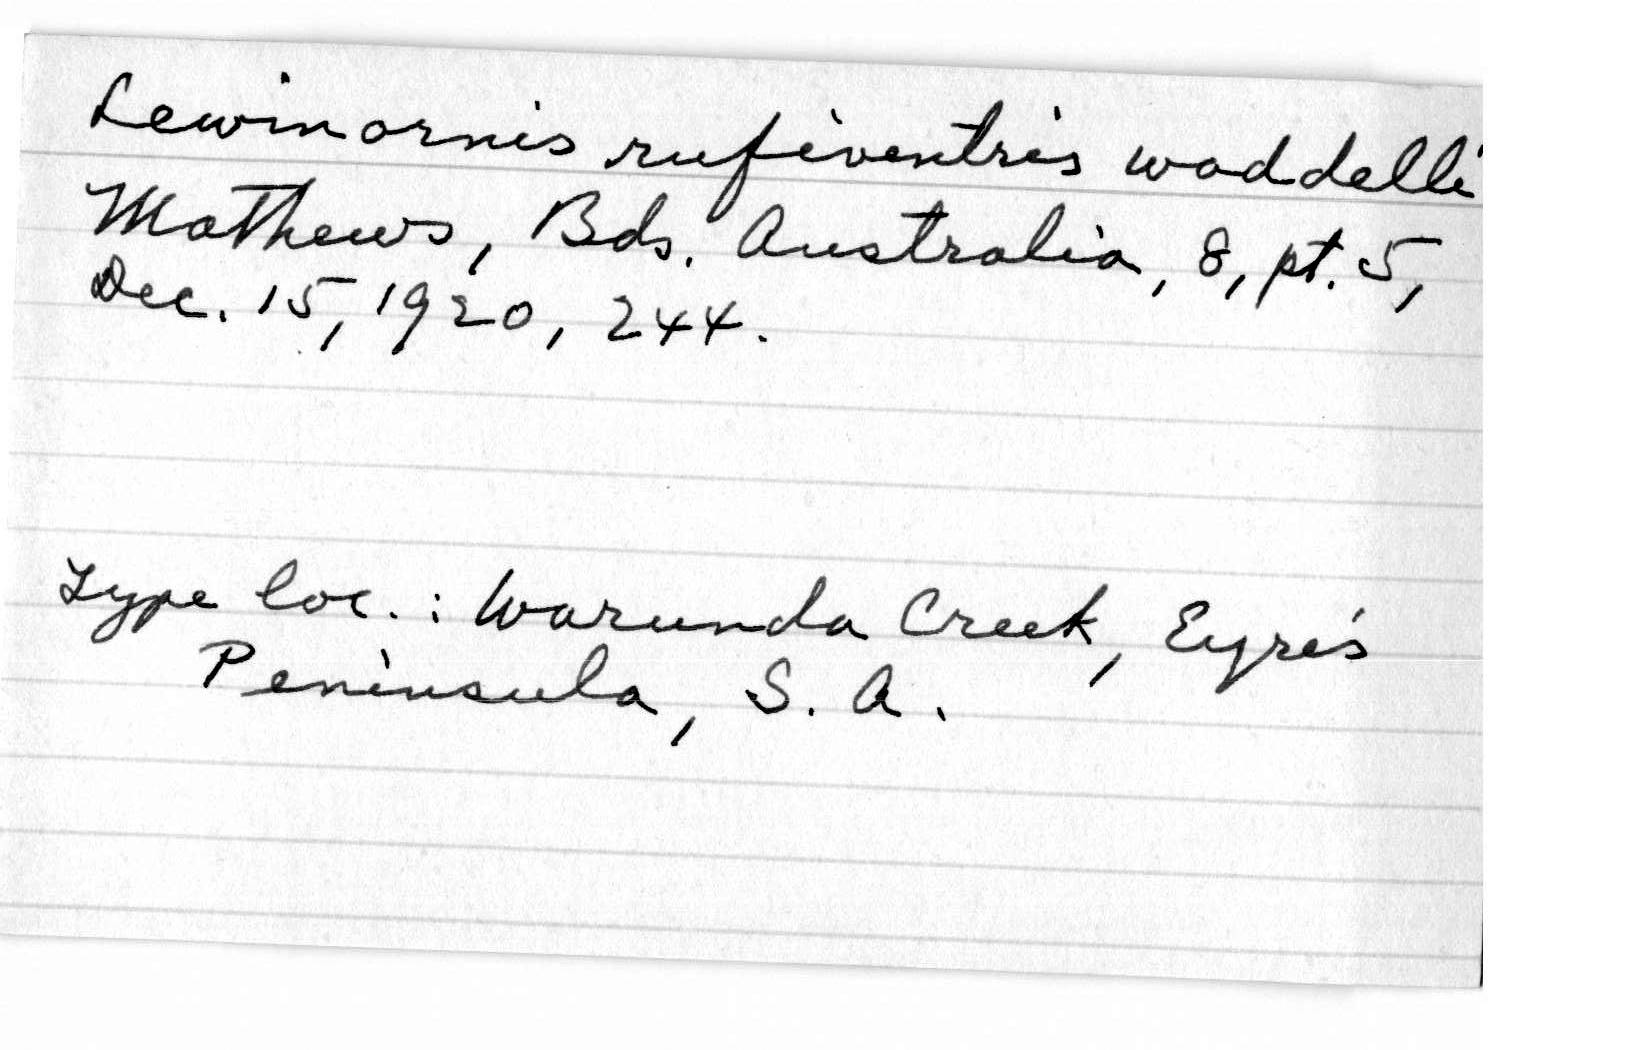 Lewinornis rufiventris waddelli
Mathews, Bds. Australia, 8, pt. 5,
Dec. 15, 1920, 244.
Type loc. : Warunda Creek, Eyre's
Peninsula, S. A.